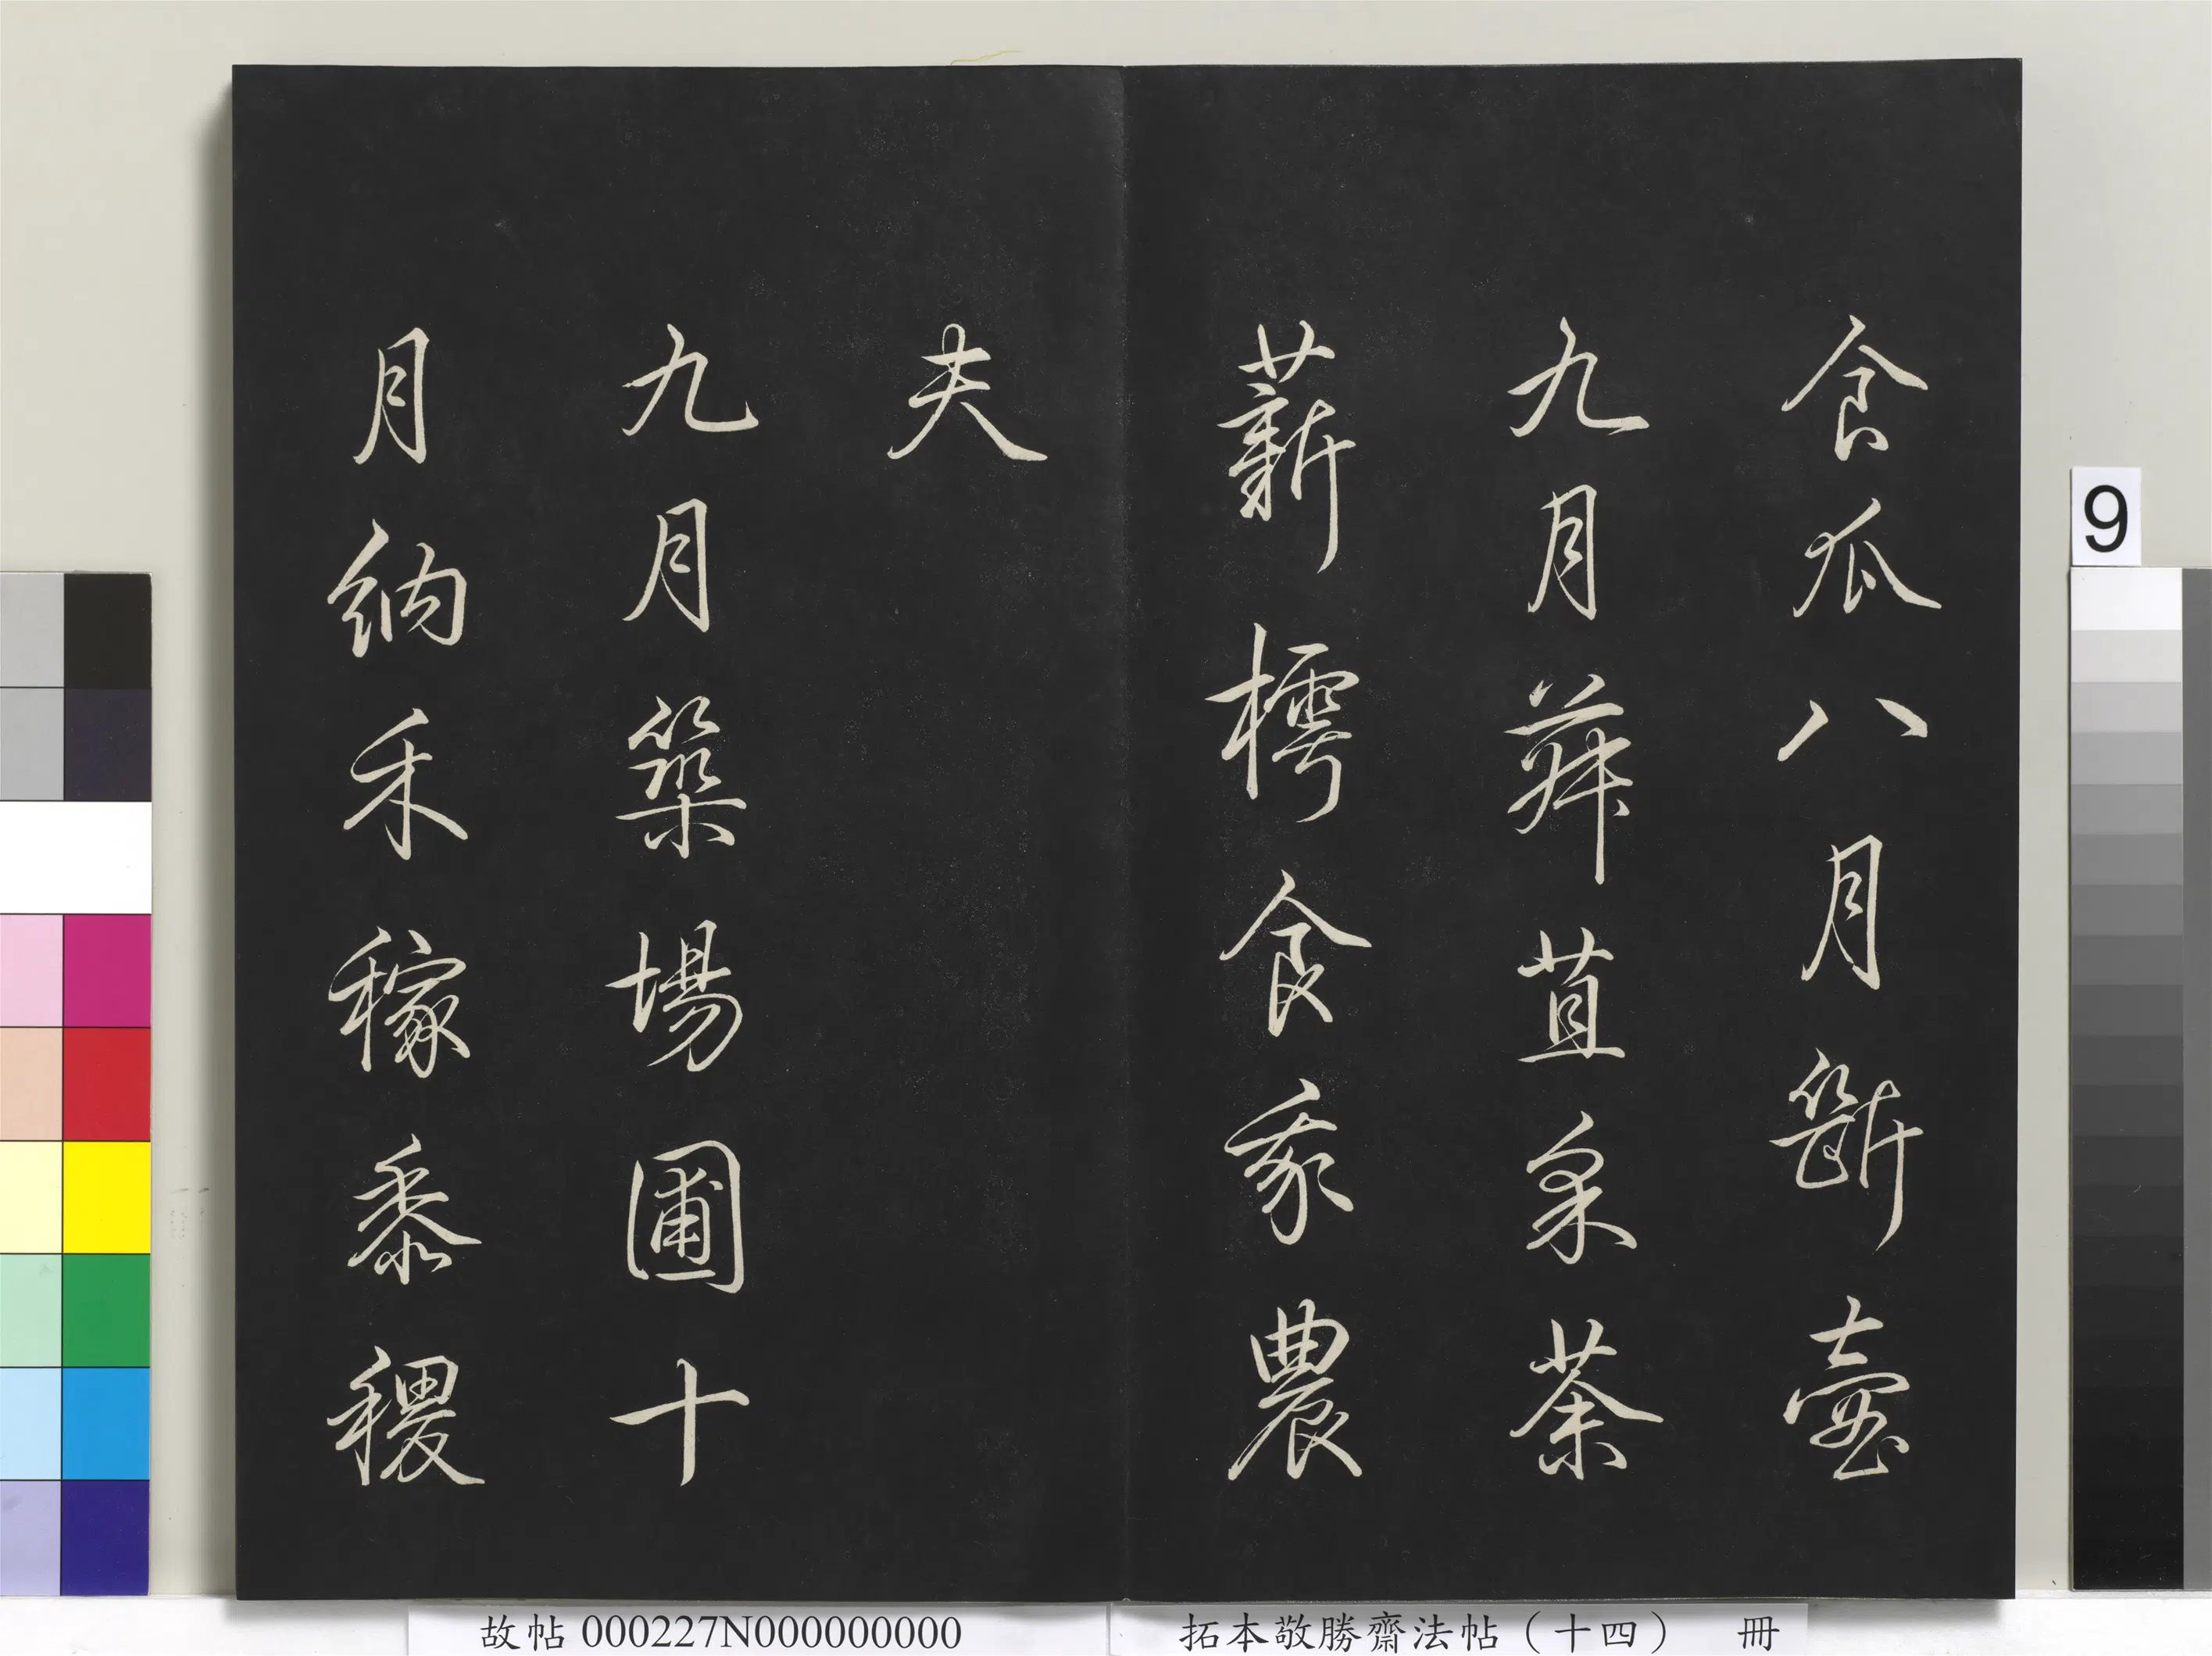 食瓜八月斷壺
九月菽苴采荼
薪樗食我農
夫
九月築場圃十
月納禾稼黍稷
9
故帖000227N000000000
拓本敬勝齋法帖（十四） 冊